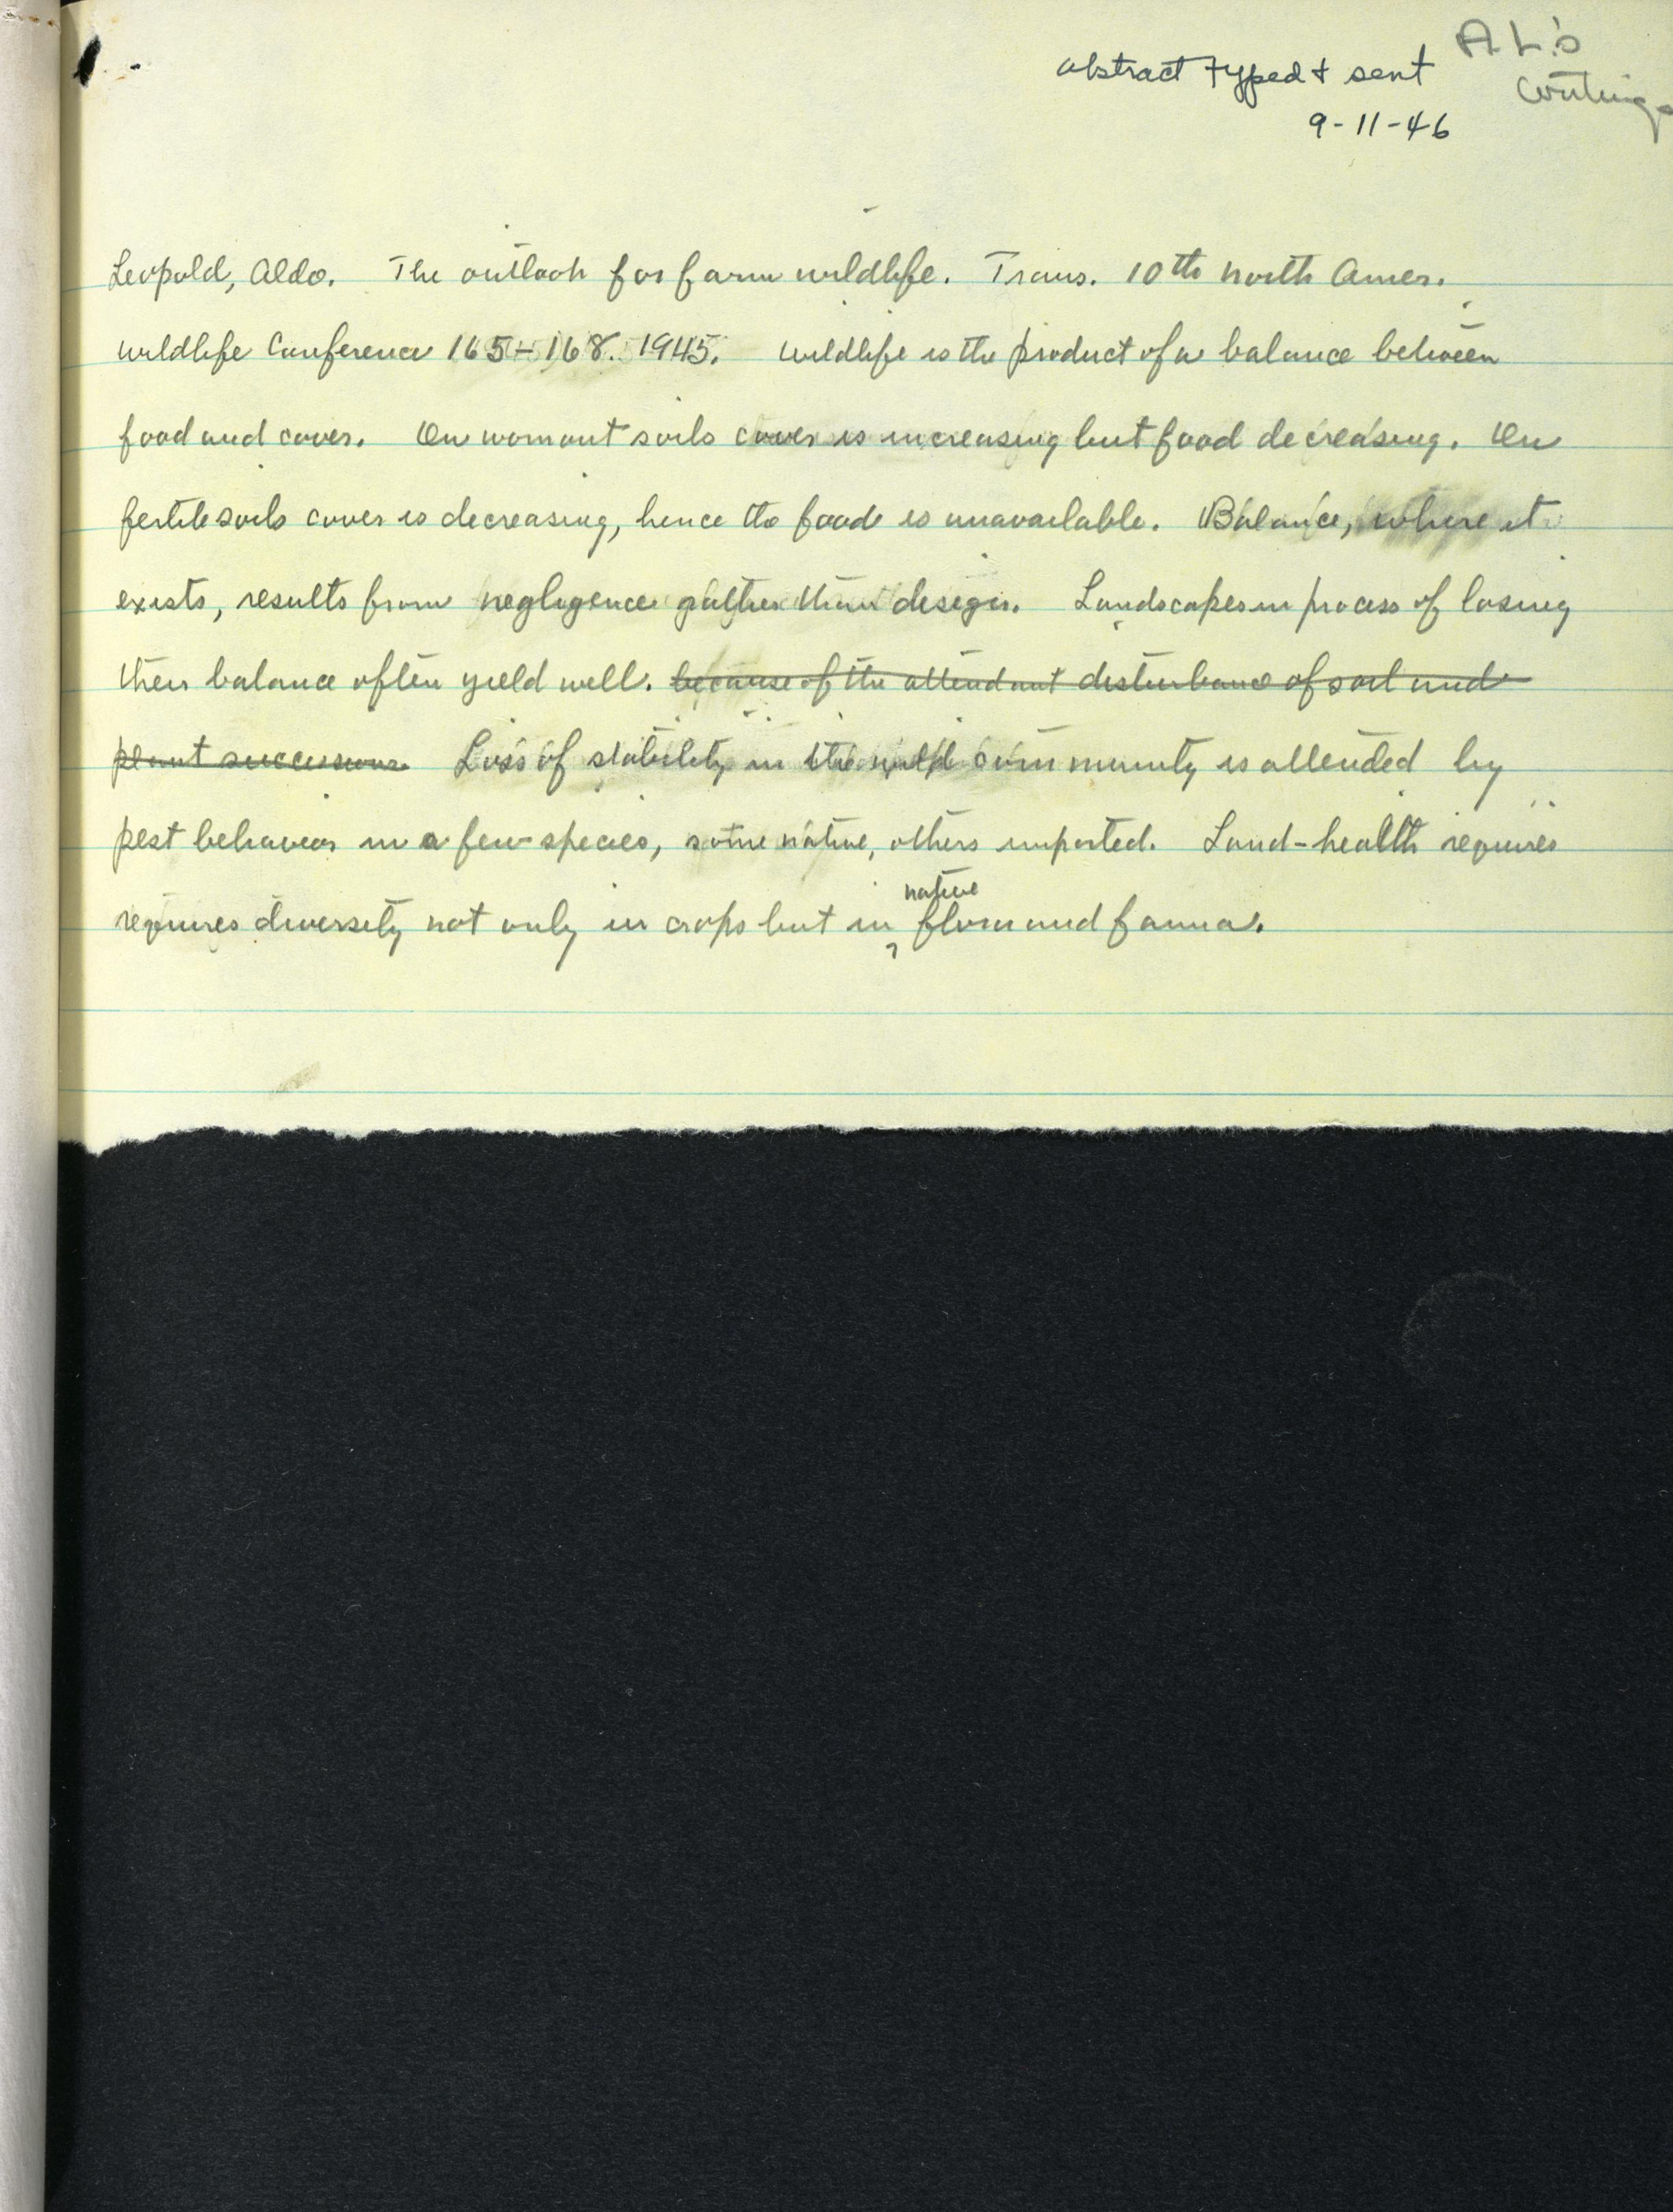 abstract typed & sent
A L's
writings
9-11-46
Leopold, Aldo. The outlook for farm wildlife. Trans. 10th North Amer.
Wildlife Conference 165-168. 1945. Wildlife is the product of a balance between
food and cover. On wornout soils cover is increasing but food decreasing. On
fertile soils cover is decreasing, hence the food is unavailable. Balance, where it
exists, results from negligence rather than design. Landscapes in process of losing
their balance often yield well. because of the attendant disturbance of soil and
plant successions. Loss of stability in the wild community is attended by
pest behavior in a few species, some native, others imported. Land-health requires
native
requires diversity not only in crops but in flora and fauna.